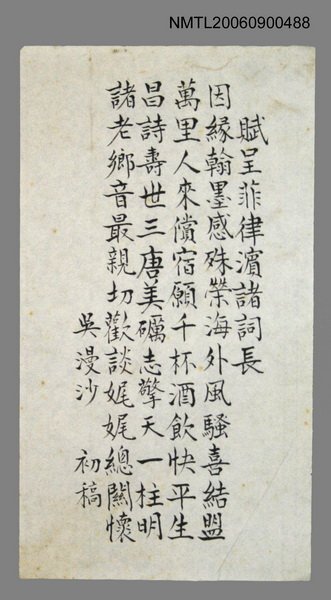 NMTL20060900488
賦呈菲律濱諸詞長
因緣翰墨感殊榮海外風騷喜結盟
萬里人來償宿願千杯酒飲快平生
昌詩壽世三唐美礪志擎天一柱明
諸老鄉音最親切歡談娓娓總關懷
吳漫沙 初稿